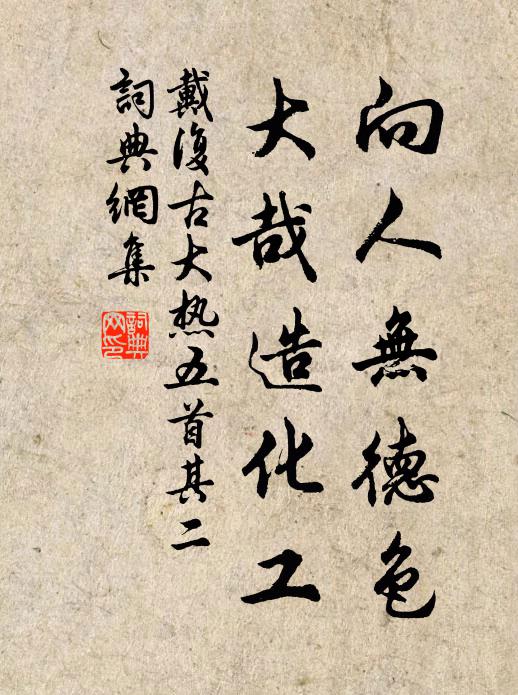 向人無德色
大哉造化工
戴復古大热五首其二
詞典網集
詞典
网印